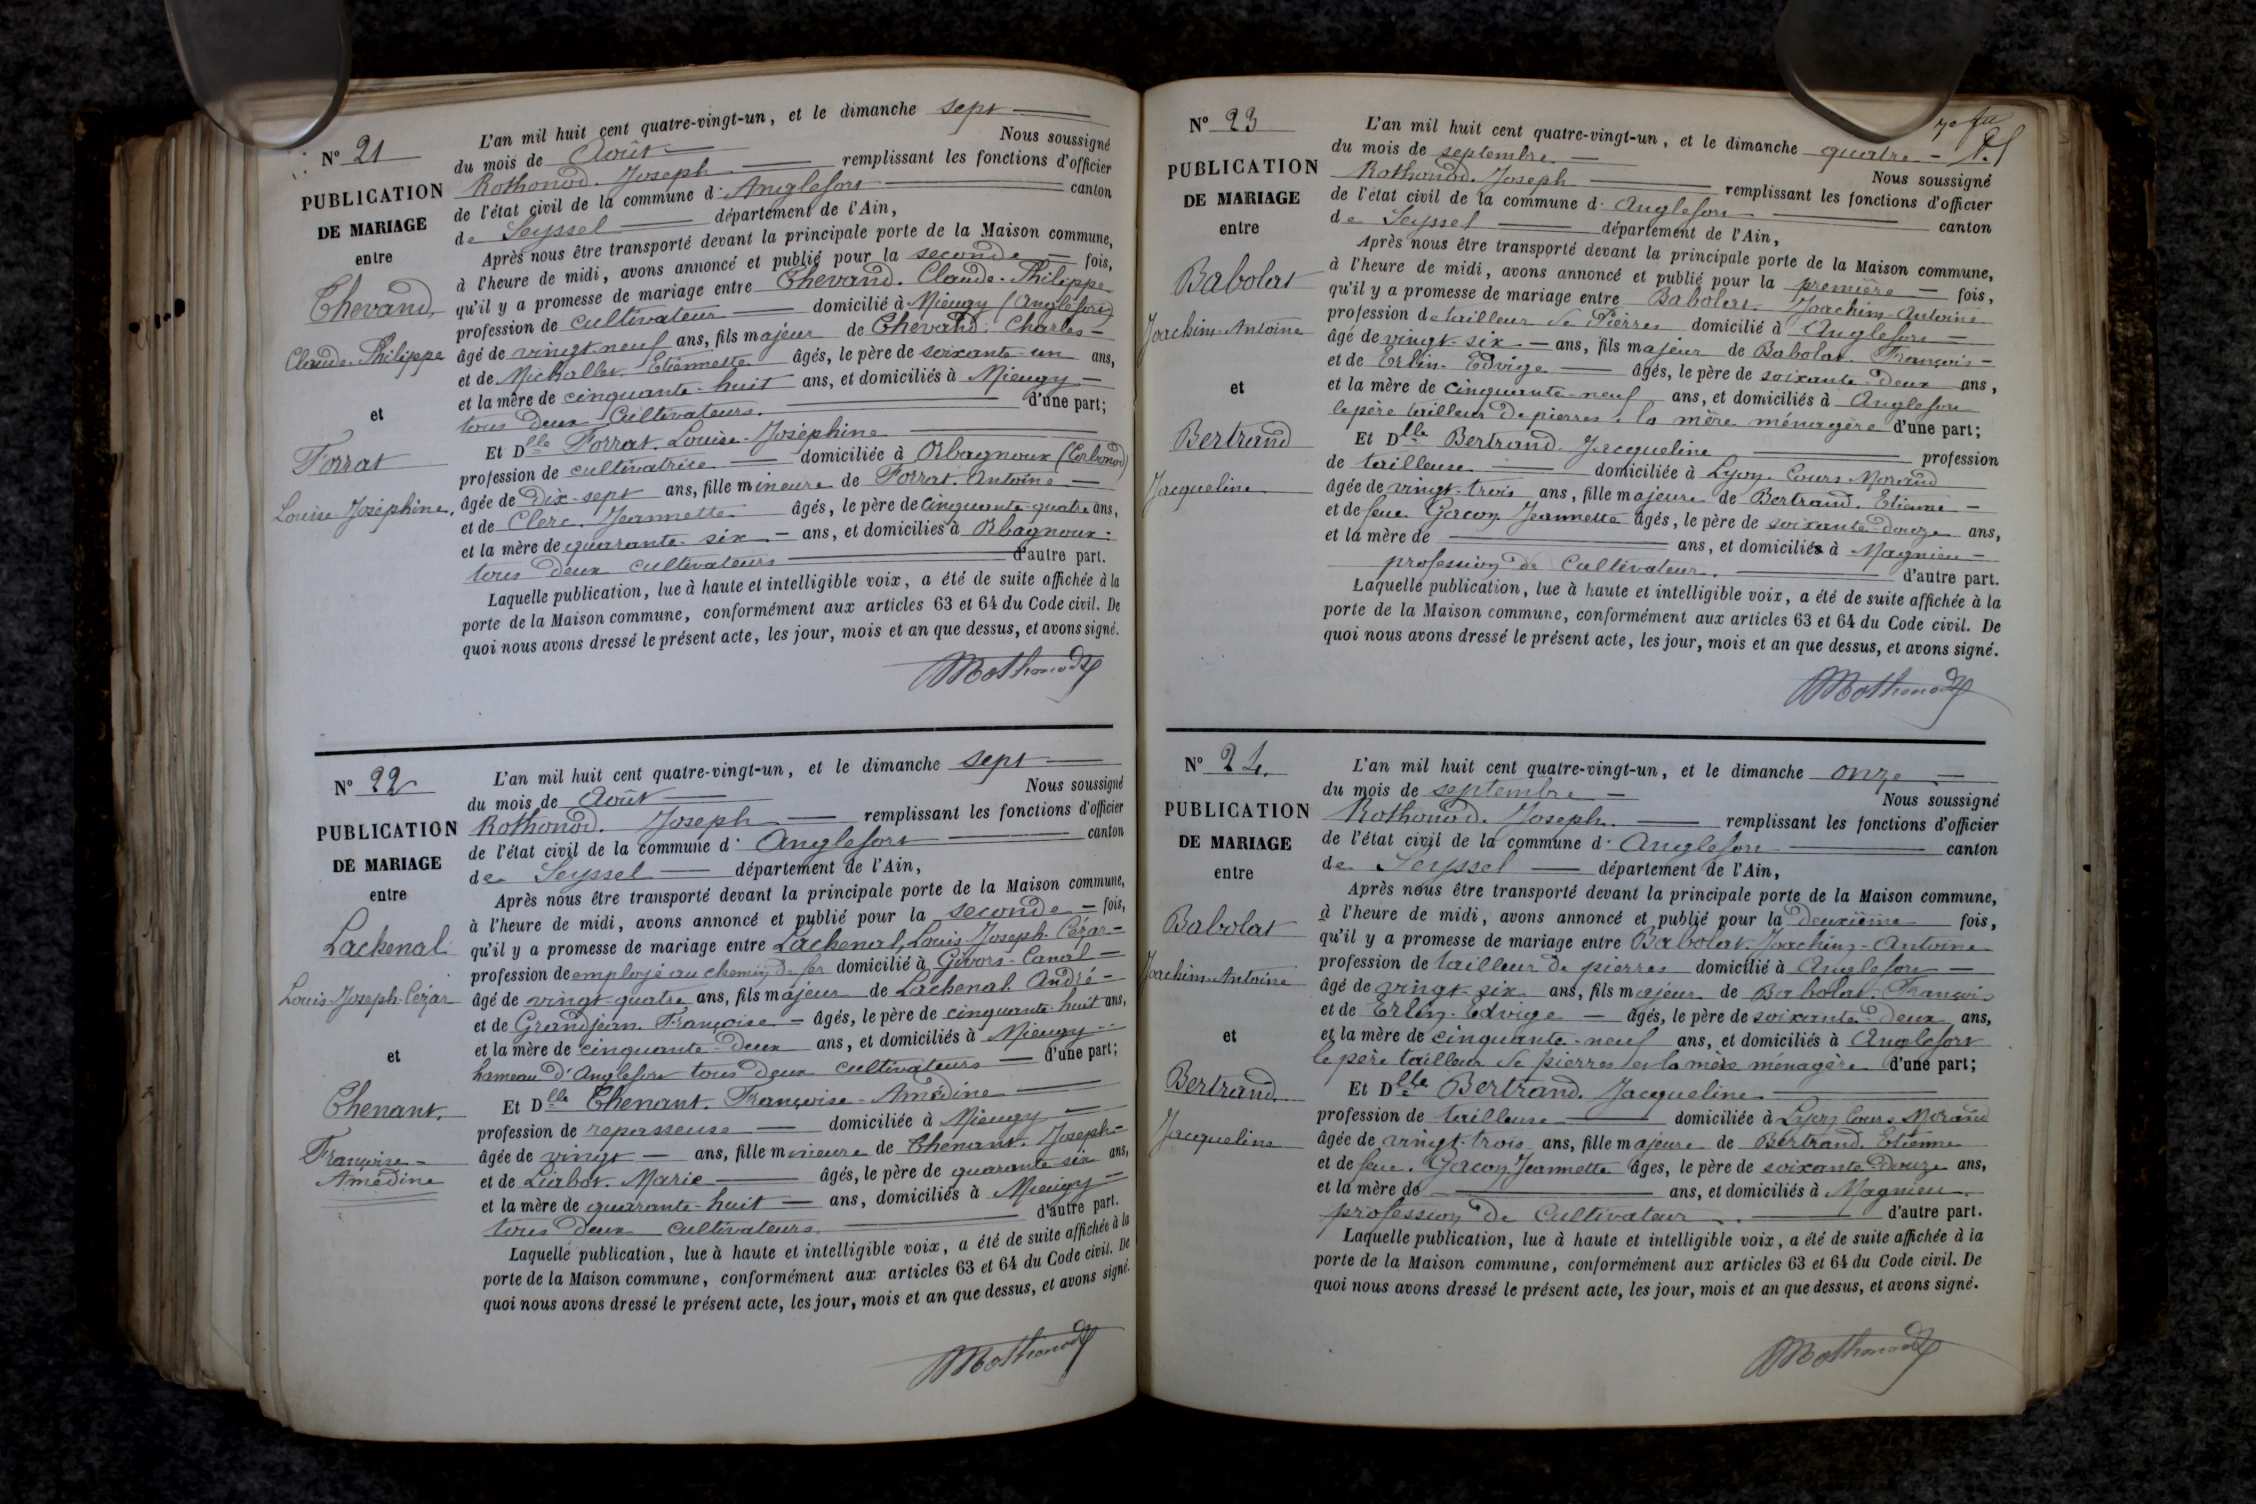 N° 21
PUBLICATION
DE MARIAGE
entre
Chevand,
Claude-Philippe
et
Forrat
Louise-Joséphine.
L'an mil huit cent quatre-vingt-un, et le dimanche sept
du mois de Août Nous soussigné
Rothonod. Joseph remplissant les fonctions d'officier
de l'état civil de la commune d' Anglefort canton
de Seyssel département de l'Ain,
Après nous être transporté devant la principale porte de la Maison commune,
à l'heure de midi, avons annoncé et publié pour la seconde fois,
qu'il y a promesse de mariage entre Chevand. Claude-Philippe
profession de cultivateur domicilié à Mieugy (Anglefort)
âgé de vingt-neuf ans, fils majeur de Chevand. Charles
et de Michallet. Etiennette âgés, le père de soixante-un ans,
et la mère de cinquante-huit ans, et domiciliés à Mieugy
tous deux Cultivateurs. d'une part;
Et Dlle Forrat. Louise-Joséphine
profession de cultivatrice domiciliée à Orbagnoux (Corbonod)
âgée de dix-sept ans, fille mineure de Forrat. Antoine
et de Clerc. Jeannette âgés, le père de cinquante-quatre ans,
et la mère de quarante-six ans, et domiciliés à Orbagnoux.
tous deux cultivateurs d'autre part.
Laquelle publication, lue à haute et intelligible voix, a été de suite affichée à la
porte de la Maison commune, conformément aux articles 63 et 64 du Code civil. De
quoi nous avons dressé le présent acte, les jour, mois et an que dessus, et avons signé.
Rothonod
N° 22
PUBLICATION
DE MARIAGE
entre
Lachenal
Louis-Joseph-Cézar
et
Chenant.
Françoise-
Amédine
L'an mil huit cent quatre-vingt-un, et le dimanche sept
du mois de Août Nous soussigné
Rothonod. Joseph remplissant les fonctions d'officier
de l'état civil de la commune d' Anglefort canton
de Seyssel département de l'Ain,
Après nous être transporté devant la principale porte de la Maison commune,
à l'heure de midi, avons annoncé et publié pour la seconde fois,
qu'il y a promesse de mariage entre Lachenal, Louis-Joseph-Cézar
profession de employé au chemin de fer domicilié à Givors-Canal
âgé de vingt-quatre ans, fils majeur de Lachenal André
et de Grandjean. Françoise âgés, le père de cinquante-huit ans,
et la mère de cinquante-deux ans, et domiciliés à Mieugy
hameau d'Anglefort tous deux cultivateurs d'une part;
Et Dlle Chenant. Françoise-Amédine
profession de repasseuse domiciliée à Mieugy
âgée de vingt ans, fille mineure de Chenant. Joseph
et de Liabot. Marie âgés, le père de quarante six ans,
et la mère de quarante-huit ans, domiciliés à Mieugy
tous deux cultivateurs. d'autre part.
Laquelle publication, lue à haute et intelligible voix, a été de suite affichée à la
porte de la Maison commune, conformément aux articles 63 et 64 du Code civil. De
quoi nous avons dressé le présent acte, les jour, mois et an que dessus, et avons signé.
Rothonod
N° 23
PUBLICATION
DE MARIAGE
entre
Babolat
Joachim-Antoine
et
Bertrand
Jacqueline
L'an mil huit cent quatre-vingt-un, et le dimanche quatre
du mois de septembre Nous soussigné
Rothonod. Joseph remplissant les fonctions d'officier
de l'état civil de la commune d' Anglefort canton
de Seyssel département de l'Ain,
Après nous être transporté devant la principale porte de la Maison commune,
à l'heure de midi, avons annoncé et publié pour la première fois,
qu'il y a promesse de mariage entre Babolat. Joachim-Antoine
profession de tailleur de Pierres domicilié à Anglefort
âgé de vingt-six ans, fils majeur de Babolat. François
et de Erlin. Edvige âgés, le père de soixante-deux ans,
et la mère de cinquante-neuf ans, et domiciliés à Anglefort
le père tailleur de pierres. la mère ménagère d'une part;
Et Dlle Bertrand. Jacqueline profession
de tailleuse domiciliée à Lyon. Cours Morand
âgée de vingt-trois ans, fille majeure de Bertrand. Etienne
et de feue. Gacon Jeannette âgés, le père de soixante-douze ans,
et la mère de ans, et domiciliés à Magnieu
profession de Cultivateur. d'autre part.
Laquelle publication, lue à haute et intelligible voix, a été de suite affichée à la
porte de la Maison commune, conformément aux articles 63 et 64 du Code civil. De
quoi nous avons dressé le présent acte, les jour, mois et an que dessus, et avons signé.
Rothonod
N° 24.
PUBLICATION
DE MARIAGE
entre
Babolat
Joachim-Antoine
et
Bertrand
Jacqueline
L'an mil huit cent quatre-vingt-un, et le dimanche onze
du mois de septembre Nous soussigné
Rothonod. Joseph. remplissant les fonctions d'officier
de l'état civil de la commune d' Anglefort canton
de Seyssel département de l'Ain,
Après nous être transporté devant la principale porte de la Maison commune,
à l'heure de midi, avons annoncé et publié pour la deuxième fois,
qu'il y a promesse de mariage entre Babolat. Joachim-Antoine
profession de tailleur de pierres domicilié à Anglefort
âgé de vingt-six ans, fils majeur de Babolat. François
et de Erlin. Edvige âgés, le père de soixante-deux ans,
et la mère de cinquante-neuf ans, et domiciliés à Anglefort
le père tailleur de pierres et la mère ménagère d'une part;
Et Dlle Bertrand. Jacqueline
profession de tailleuse domiciliée à Lyon Cours Morand
âgée de vingt-trois ans, fille majeure de Bertrand. Etienne
et de feue. Gacon Jeannette âgés, le père de soixante-douze ans,
et la mère de ans, et domiciliés à Magnieu.
profession de Cultivateur. d'autre part.
Laquelle publication, lue à haute et intelligible voix, a été de suite affichée à la
porte de la Maison commune, conformément aux articles 63 et 64 du Code civil. De
quoi nous avons dressé le présent acte, les jour, mois et an que dessus, et avons signé.
Rothonod